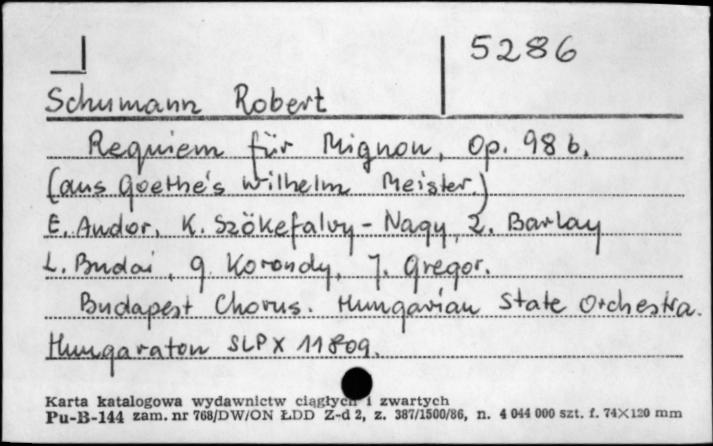 5286
Schumann Robert
Requiem für Mignon, Op. 98 b.
(aus Goethe's Wilhelm Meister.)
E. Andor, K. Szökefalvy-Nagy, Z. Barlay
L. Budai, G. Korondy, J. Gregor.
Budapest Chorus. Hungarian State Orchestra.
Hungaraton SLPX 11809.
Karta katalogowa wydawnictw ciągłych i zwartych
Pu-B-144 zam. nr 768/DW/ON ŁDD Z-d 2, z. 387/1500/86, n. 4 044 000 szt. f. 74×120 mm